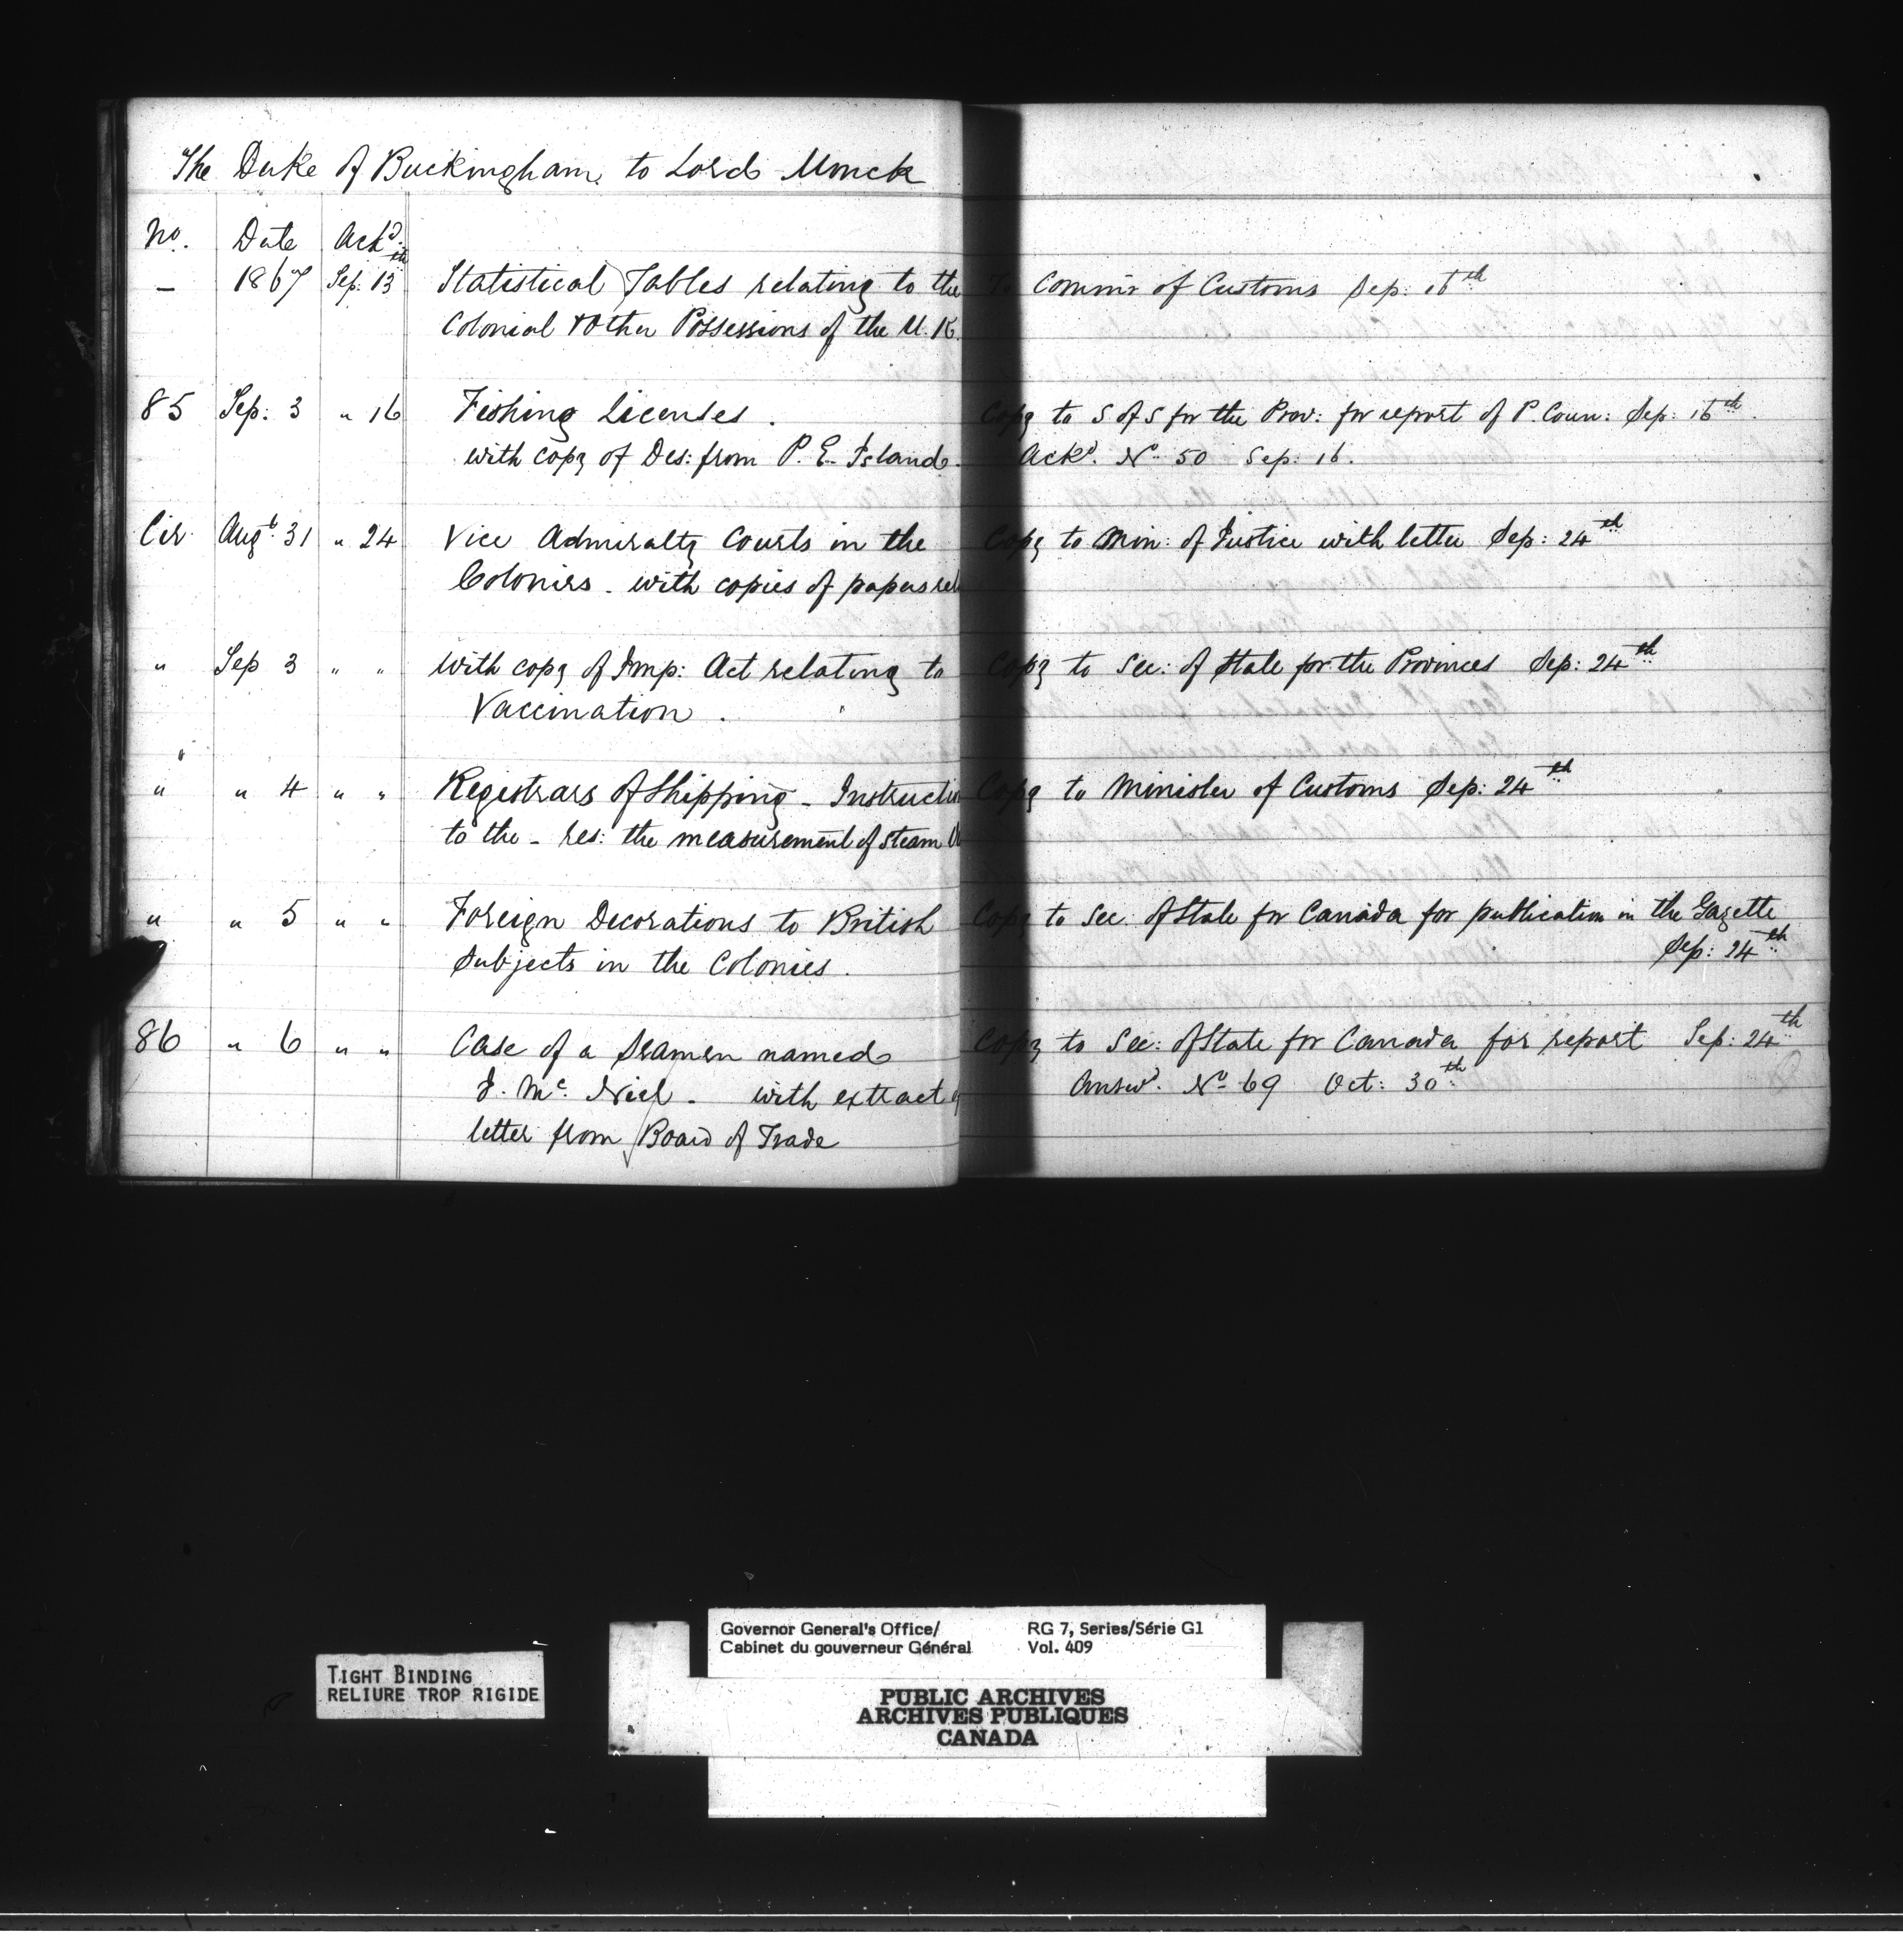 The Duke of Buckingham to Lord Monck
No. Date Ackd.
— 1867 Sep. 13th Statistical Tables relating to the To Commr of Customs Sep: 16th
Colonial & Other Possessions of the U.K.
85 Sep: 3 " 16 Fishing Licenses. Copy to S of S for the Prov: for report of P. Coun: Sep: 16th.
with copy of Des: from P. E. Island. Ackd. No 50 Sep: 16.
Cir Augt 31 " 24 Vice Admiralty Courts in the Copy to Min: of Justice with letter Sep: 24th
Colonies. with copies of papers rel
" Sep 3 " " With copy of Imp: Act relating to Copy to Sec: of State for the Provinces Sep: 24th
Vaccination.
" " 4 " " Registrars of Shipping - Instructio Copy to Minister of Customs Sep: 24th
to the - res: the measurement of Steam
" " 5 " " Foreign Decorations to British Copy to Sec: of State for Canada for publication in the Gazette
Subjects in the Colonies. Sep: 24th
86 " 6 " " Case of a Seamen named Copy to Sec: of State for Canada for report Sep: 24th
J. Mc. Niel. with extract Answd. No 69 Oct: 30th
letter from Board of Trade
TIGHT BINDING
RELIURE TROP RIGIDE
Governor General's Office/
Cabinet du gouverneur Général
RG 7, Series/Série G1
Vol. 409
PUBLIC ARCHIVES
ARCHIVES PUBLIQUES
CANADA